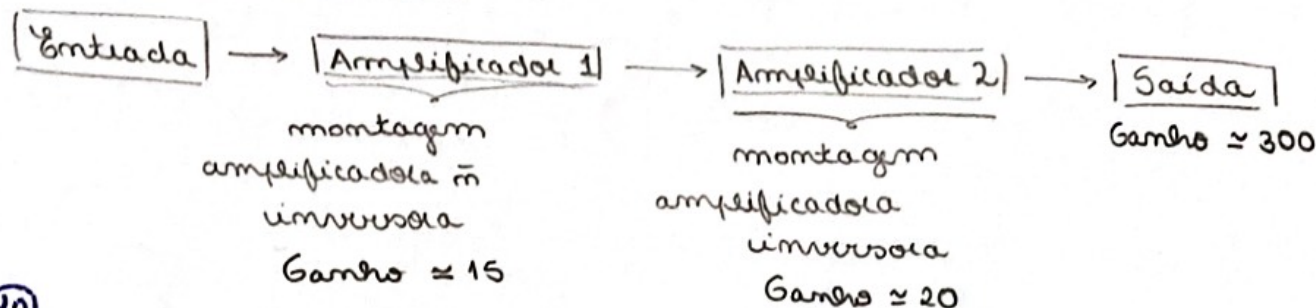 Entrada → Amplificador 1 → Amplificador 2 → Saída
Ganho ≃ 300
montagem
amplificadora n̄
inversora
Ganho ≃ 15
montagem
amplificadora
inversora
Ganho ≃ 20